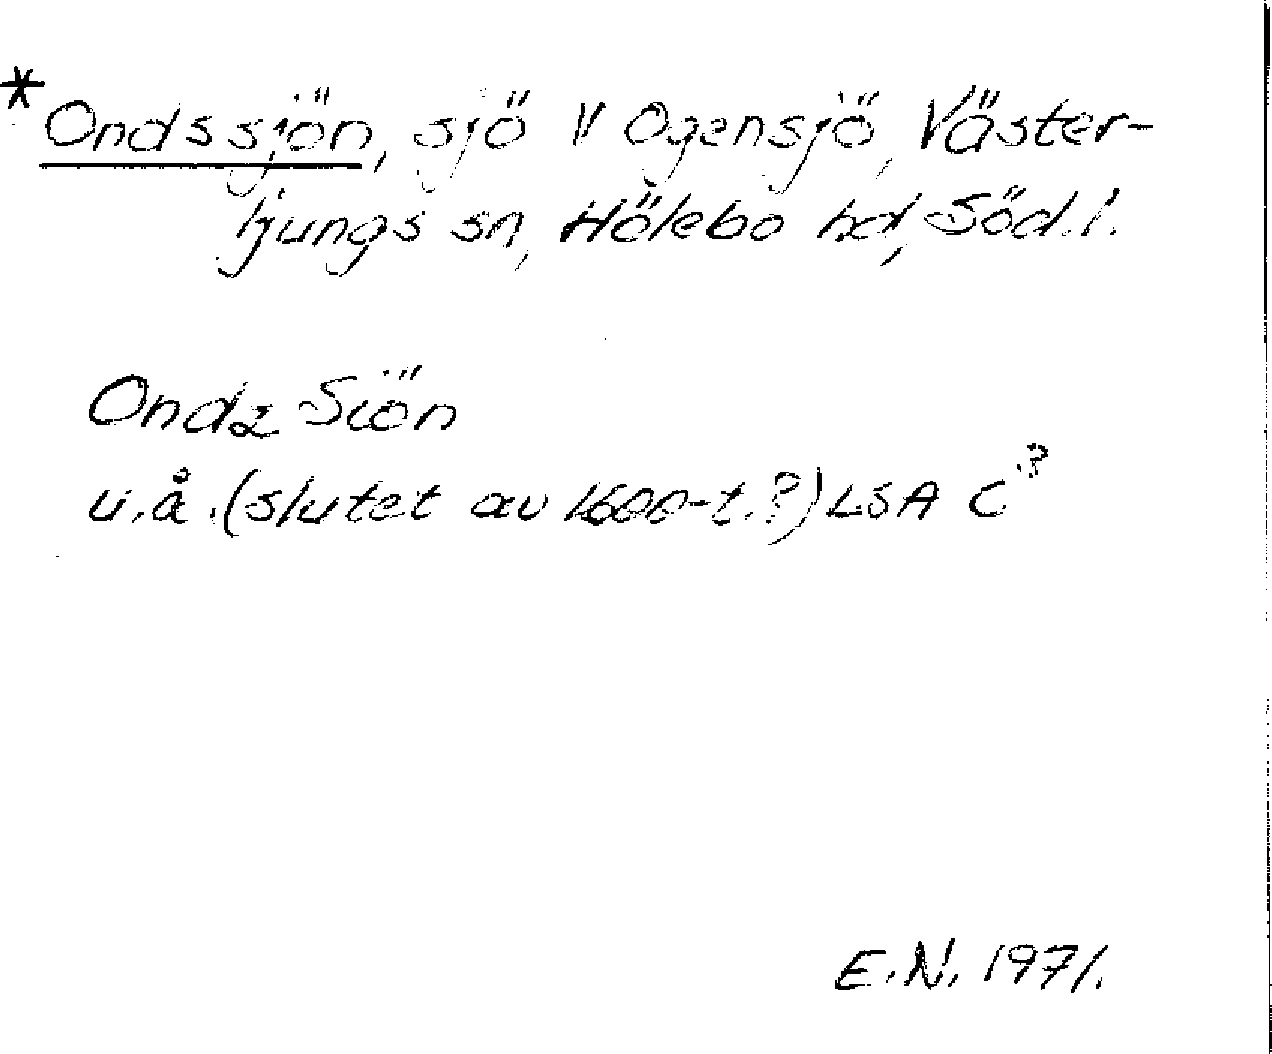 *Ondssjön, sjö V Ogensjö, Väster-
ljungs sn, Hölebo hd, Söd.l.
Ondz Siön
u.å. (slutet av 1600-t.?) LSA C?
E.N. 1971.